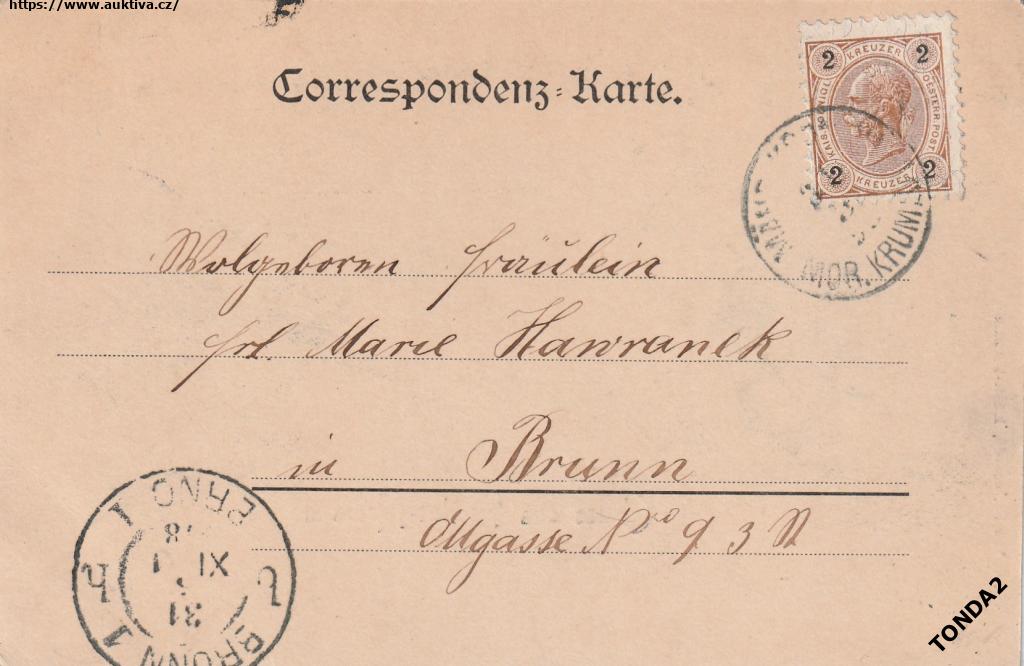 https://www.auktiva.cz/
Correspondenz-Karte.
2 KREUZER 2
KAIS. KÖNIGL. OESTERR. POST.
2 KREUZER 2
MÄHR. MOR. KRUM
Wolgeboren Fräulein
Frl. Marie Hawranek
in Brunn
No 9 3 St
BRÜNN 1
BRNO 1
31
XI
TONDA2